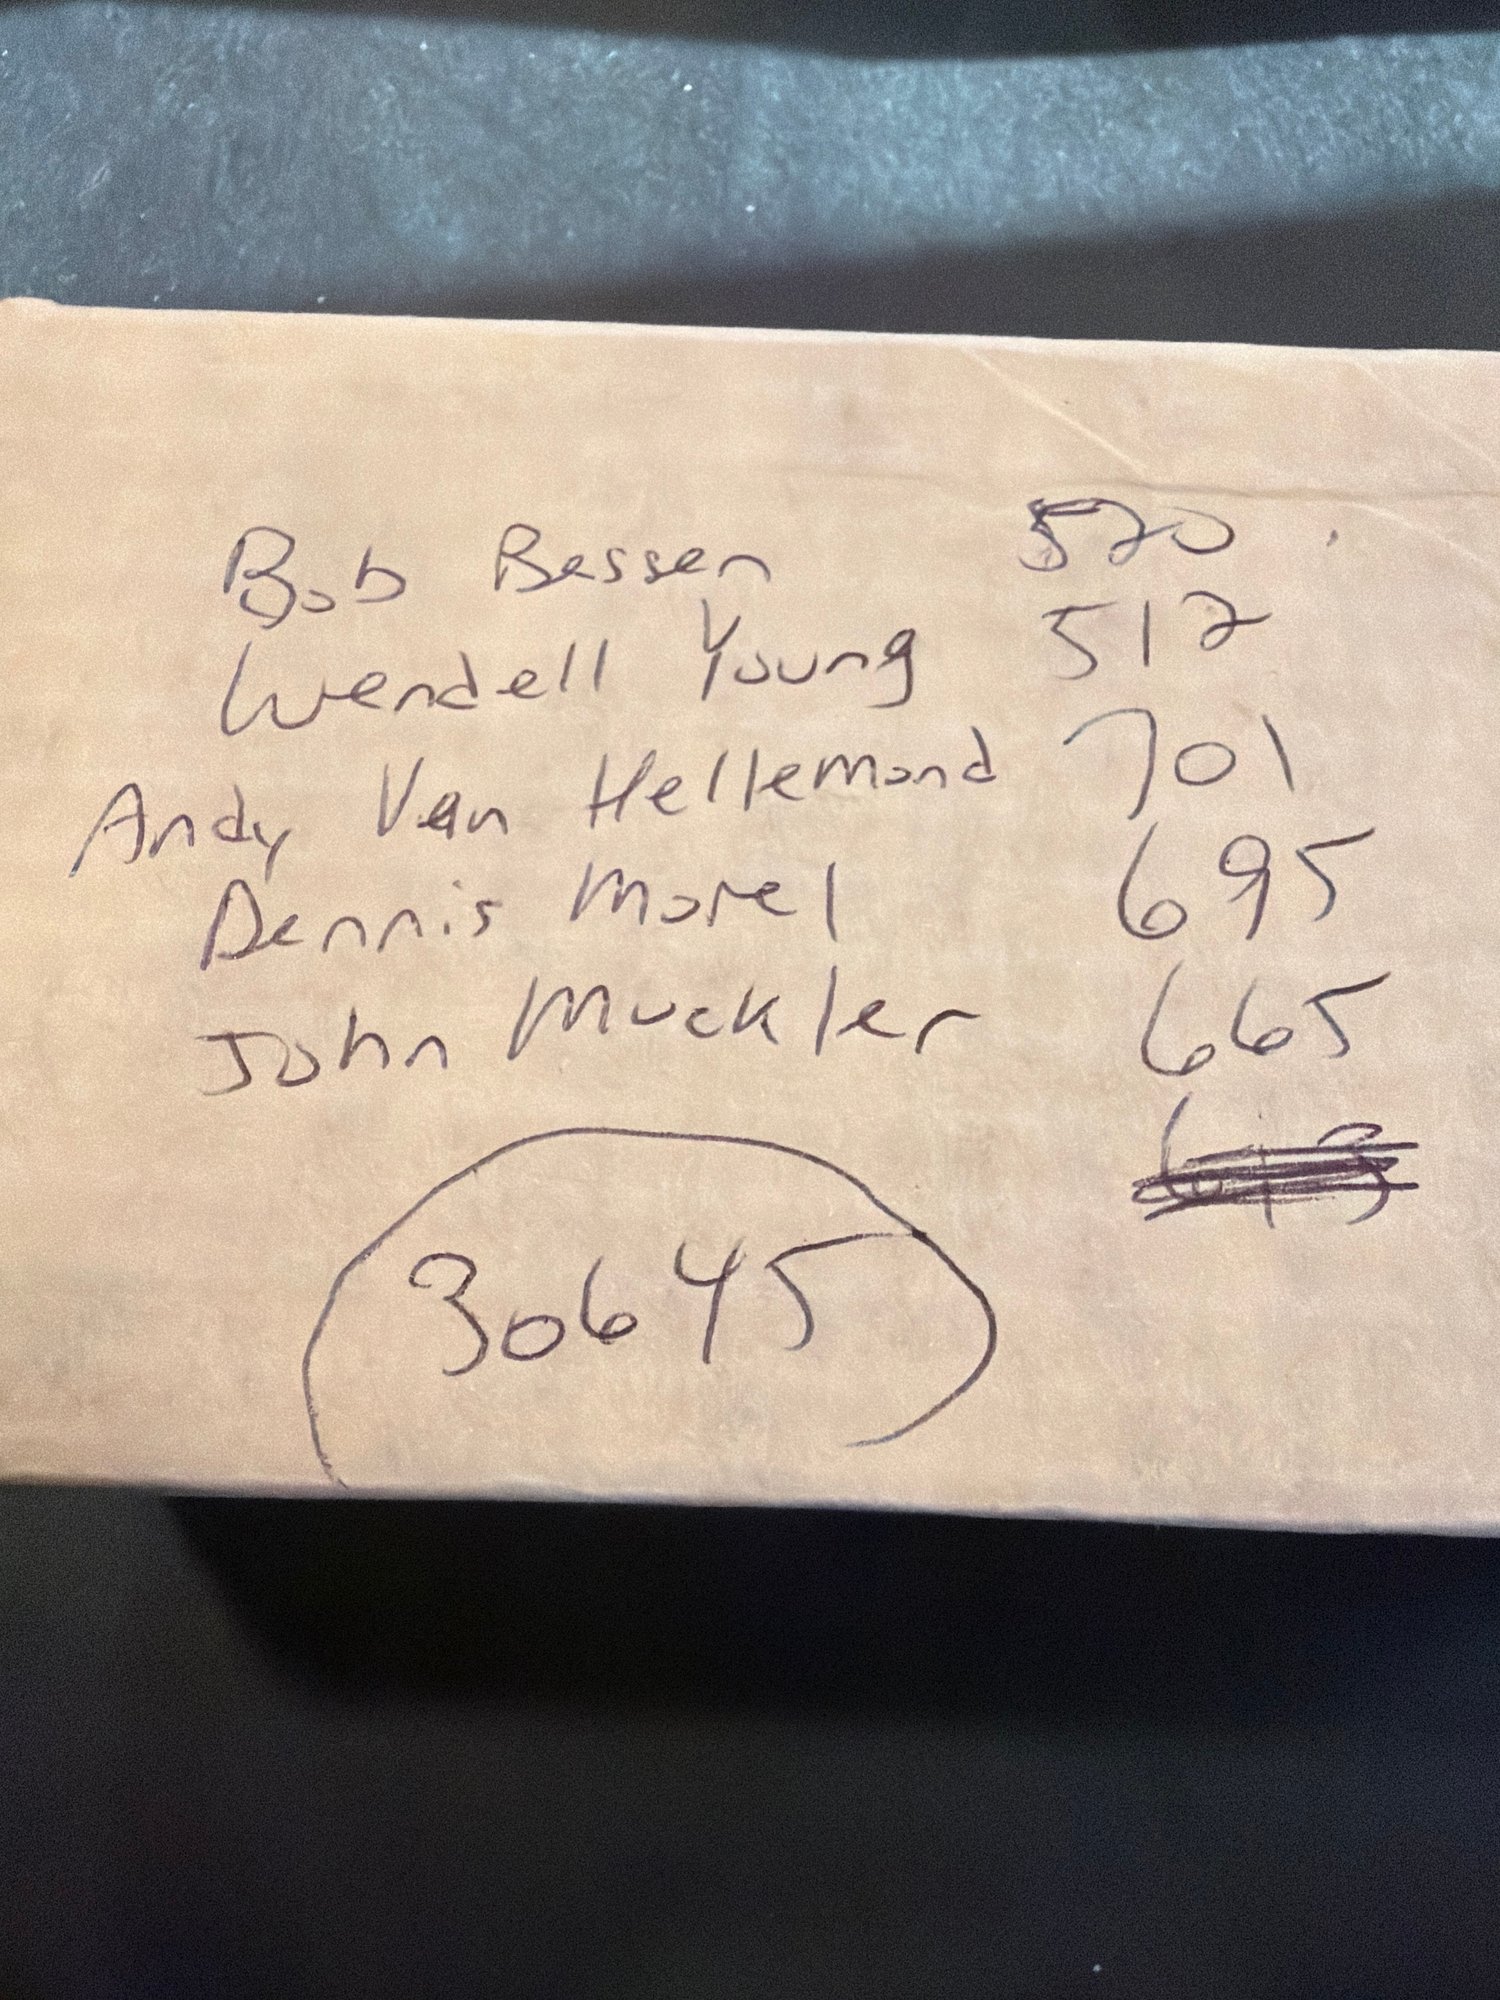 Bob Bessen 520
Wendell Young 512
Andy Van Hellemond 701
Dennis Morel 695
John Muckler 665
30645